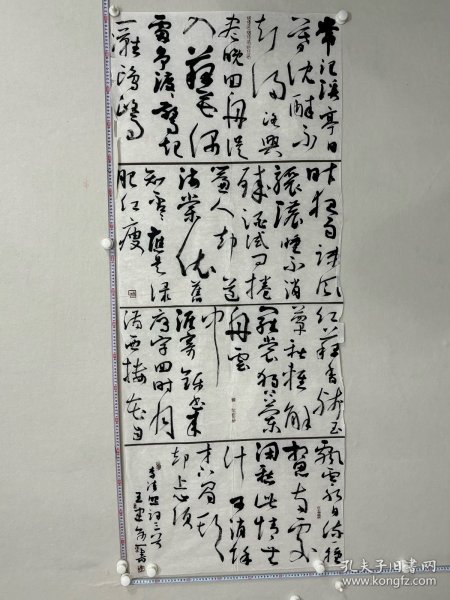 常记溪亭日
暮沈醉不
知归路兴
尽晚回舟误
入藕花深
处争渡争渡惊起
一滩鸥鹭
昨夜雨疏风
骤浓睡不消
残酒试问卷
帘人却道
海棠依旧
知否应是绿
肥红瘦
红藕香残玉
簟秋轻解
罗裳独上兰
舟云
中
谁寄锦书来
雁字回时月
满西楼花自
飘零水自流一种
相思两处
闲愁此情无
计可消除
才下眉头
却上心头
李清照词三首
孔夫子旧书网